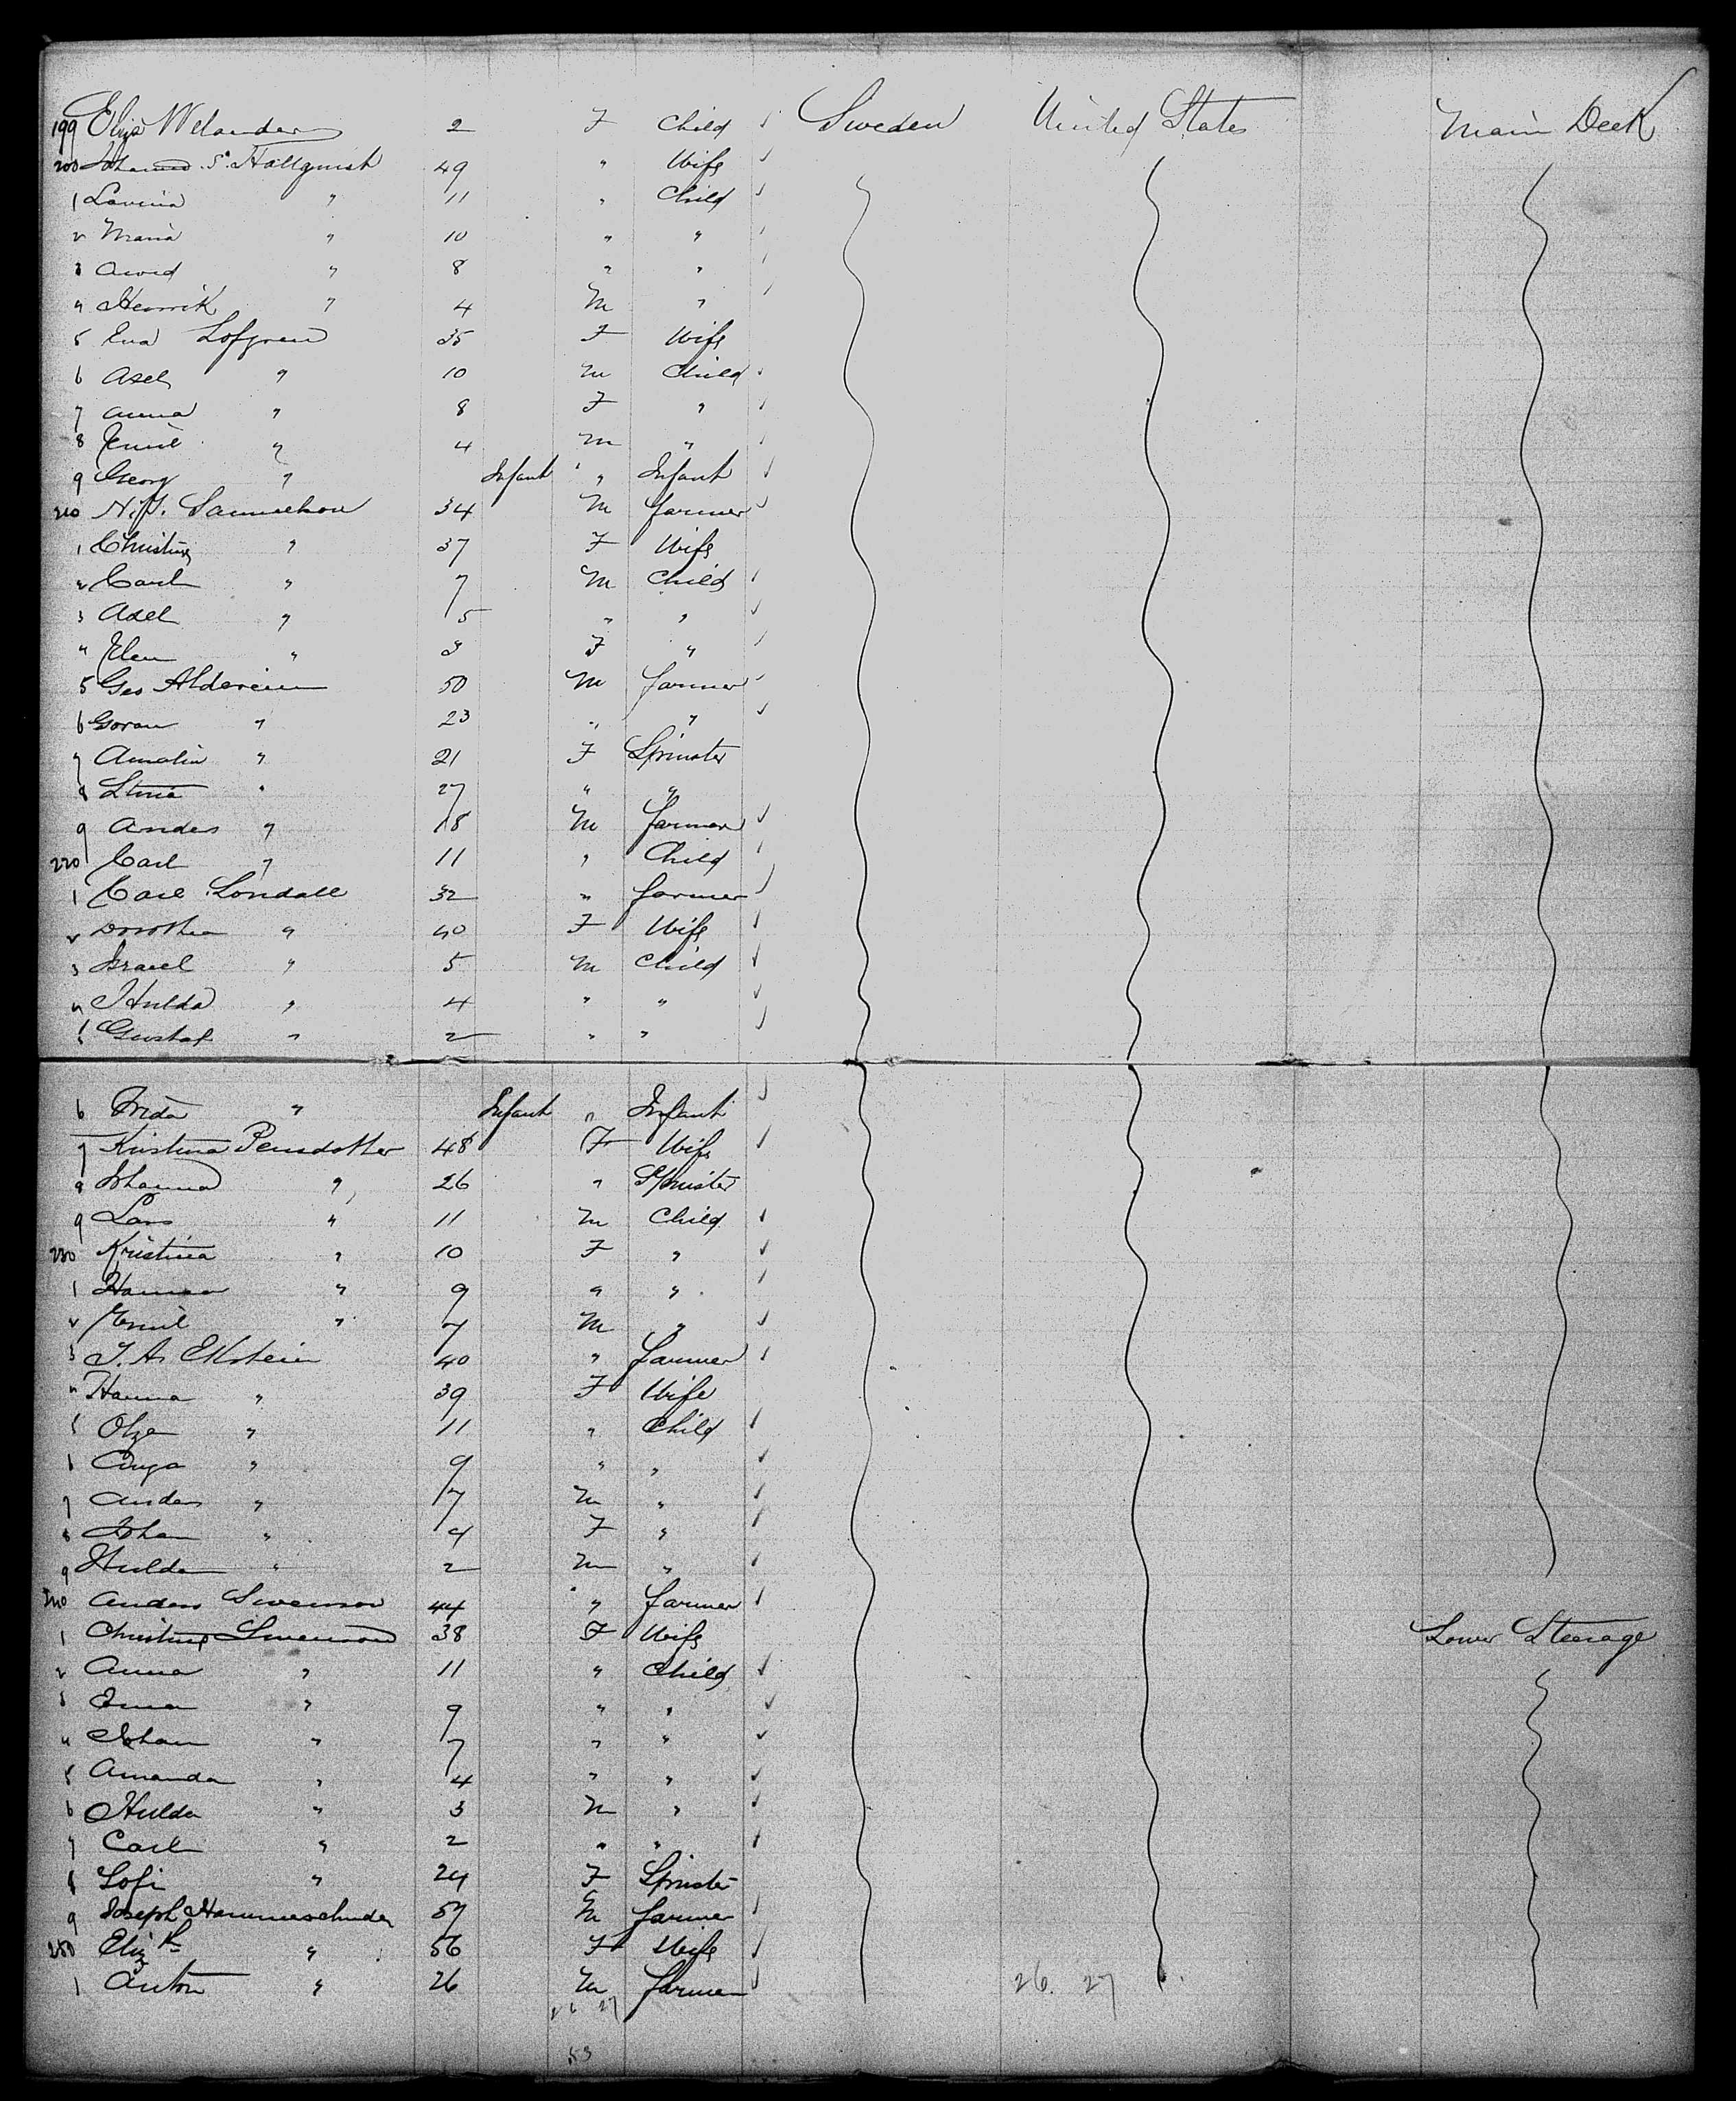 199 Eliza Welander 2 F Child Sweden United States Main Deck
200 Johanna S. Hallquist 49 " Wife
1 Lavina " 11 " Child
2 Maria " 10 " "
3 Arvid " 8 " "
4 Henrik " 4 M "
5 Eva Lofgren 35 F Wife
6 Axel " 10 M Child
7 Anna " 8 F "
8 Emil " 4 M "
9 Georg " Infant " Infant
210 Samuelson 34 M farmer
1 Christine " 37 F Wife
2 Carl " 7 M Child
3 Axel " 5 " "
4 Elen " 3 F "
5 Geo 50 M farmer
6 Goran " 23 " "
7 Amalia " 21 F Spinster
8 Stina " 27 " "
9 Anders " 18 M farmer
220 Carl " 11 " Child
1 Carl Londall 32 " farmer
2 Dorothea " 40 F Wife
3 Israel " 5 M Child
4 Hulda " 4 " "
5 Gustaf " 2 " "
6 Frida " Infant " Infant
7 Kristina Pensdotter 48 F Wife
8 Johanna " 26 " Spinster
9 Lars " 11 M Child
230 Kristina " 10 F "
1 Hanna " 9 " "
2 Emil " 7 M "
3 J. A. Ekstein 40 " farmer
4 Hanna " 39 F Wife
5 Olga " 11 " Child
6 " 9 " "
7 Anders " 7 M "
8 Johan " 4 F "
9 Hulda " 2 M "
240 Anders Swenson 44 " farmer
1 Christine Swenson 38 F Wife Lower Steerage
2 Anna " 11 " Child
3 Emma " 9 " "
4 Johan " 7 " "
5 Amanda " 4 " "
6 Hulda " 3 M "
7 Carl " 2 " "
8 Sofi " 24 F Spinster
9 Joseph Hammerschmider 57 M farmer
250 Elizth " 56 F Wife
1 Anton " 26 M farmer 26. 27
26 27
53